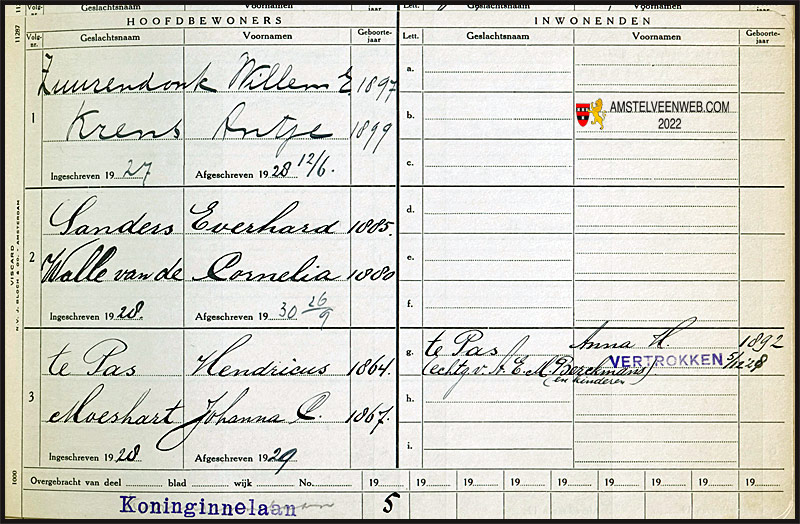 HOOFDBEWONERS INWONENDEN
Volg-nr. Geslachtsnaam Voornamen Geboorte-jaar Lett. Geslachtsnaam Voornamen Geboorte-jaar
Zuurendonk Willem E. 1897 a.
1 Krens Antje 1899 b.
AMSTELVEENWEB.COM
2022
Ingeschreven 19 27 Afgeschreven 19 28 12/6. c.
Sanders Everhard 1885. d.
2 Walle van de Cornelia 1880 e.
Ingeschreven 19 28. Afgeschreven 19 30 26/9 f.
te Pas Hendricus 1864. g. te Pas Anna H. 1892
(echtg. v. A. E. M. Berckmans)
en kinderen
VERTROKKEN 5/12 '28
3 Moeshart Johanna C. 1867. h.
Ingeschreven 19 28 Afgeschreven 19 29 i.
Overgebracht van deel blad wijk No. 19 19 19 19 19 19 19 19 19
Koninginnelaan 5
11287
VISCARD
N.V. J. BLOCH & CO. - AMSTERDAM
1000